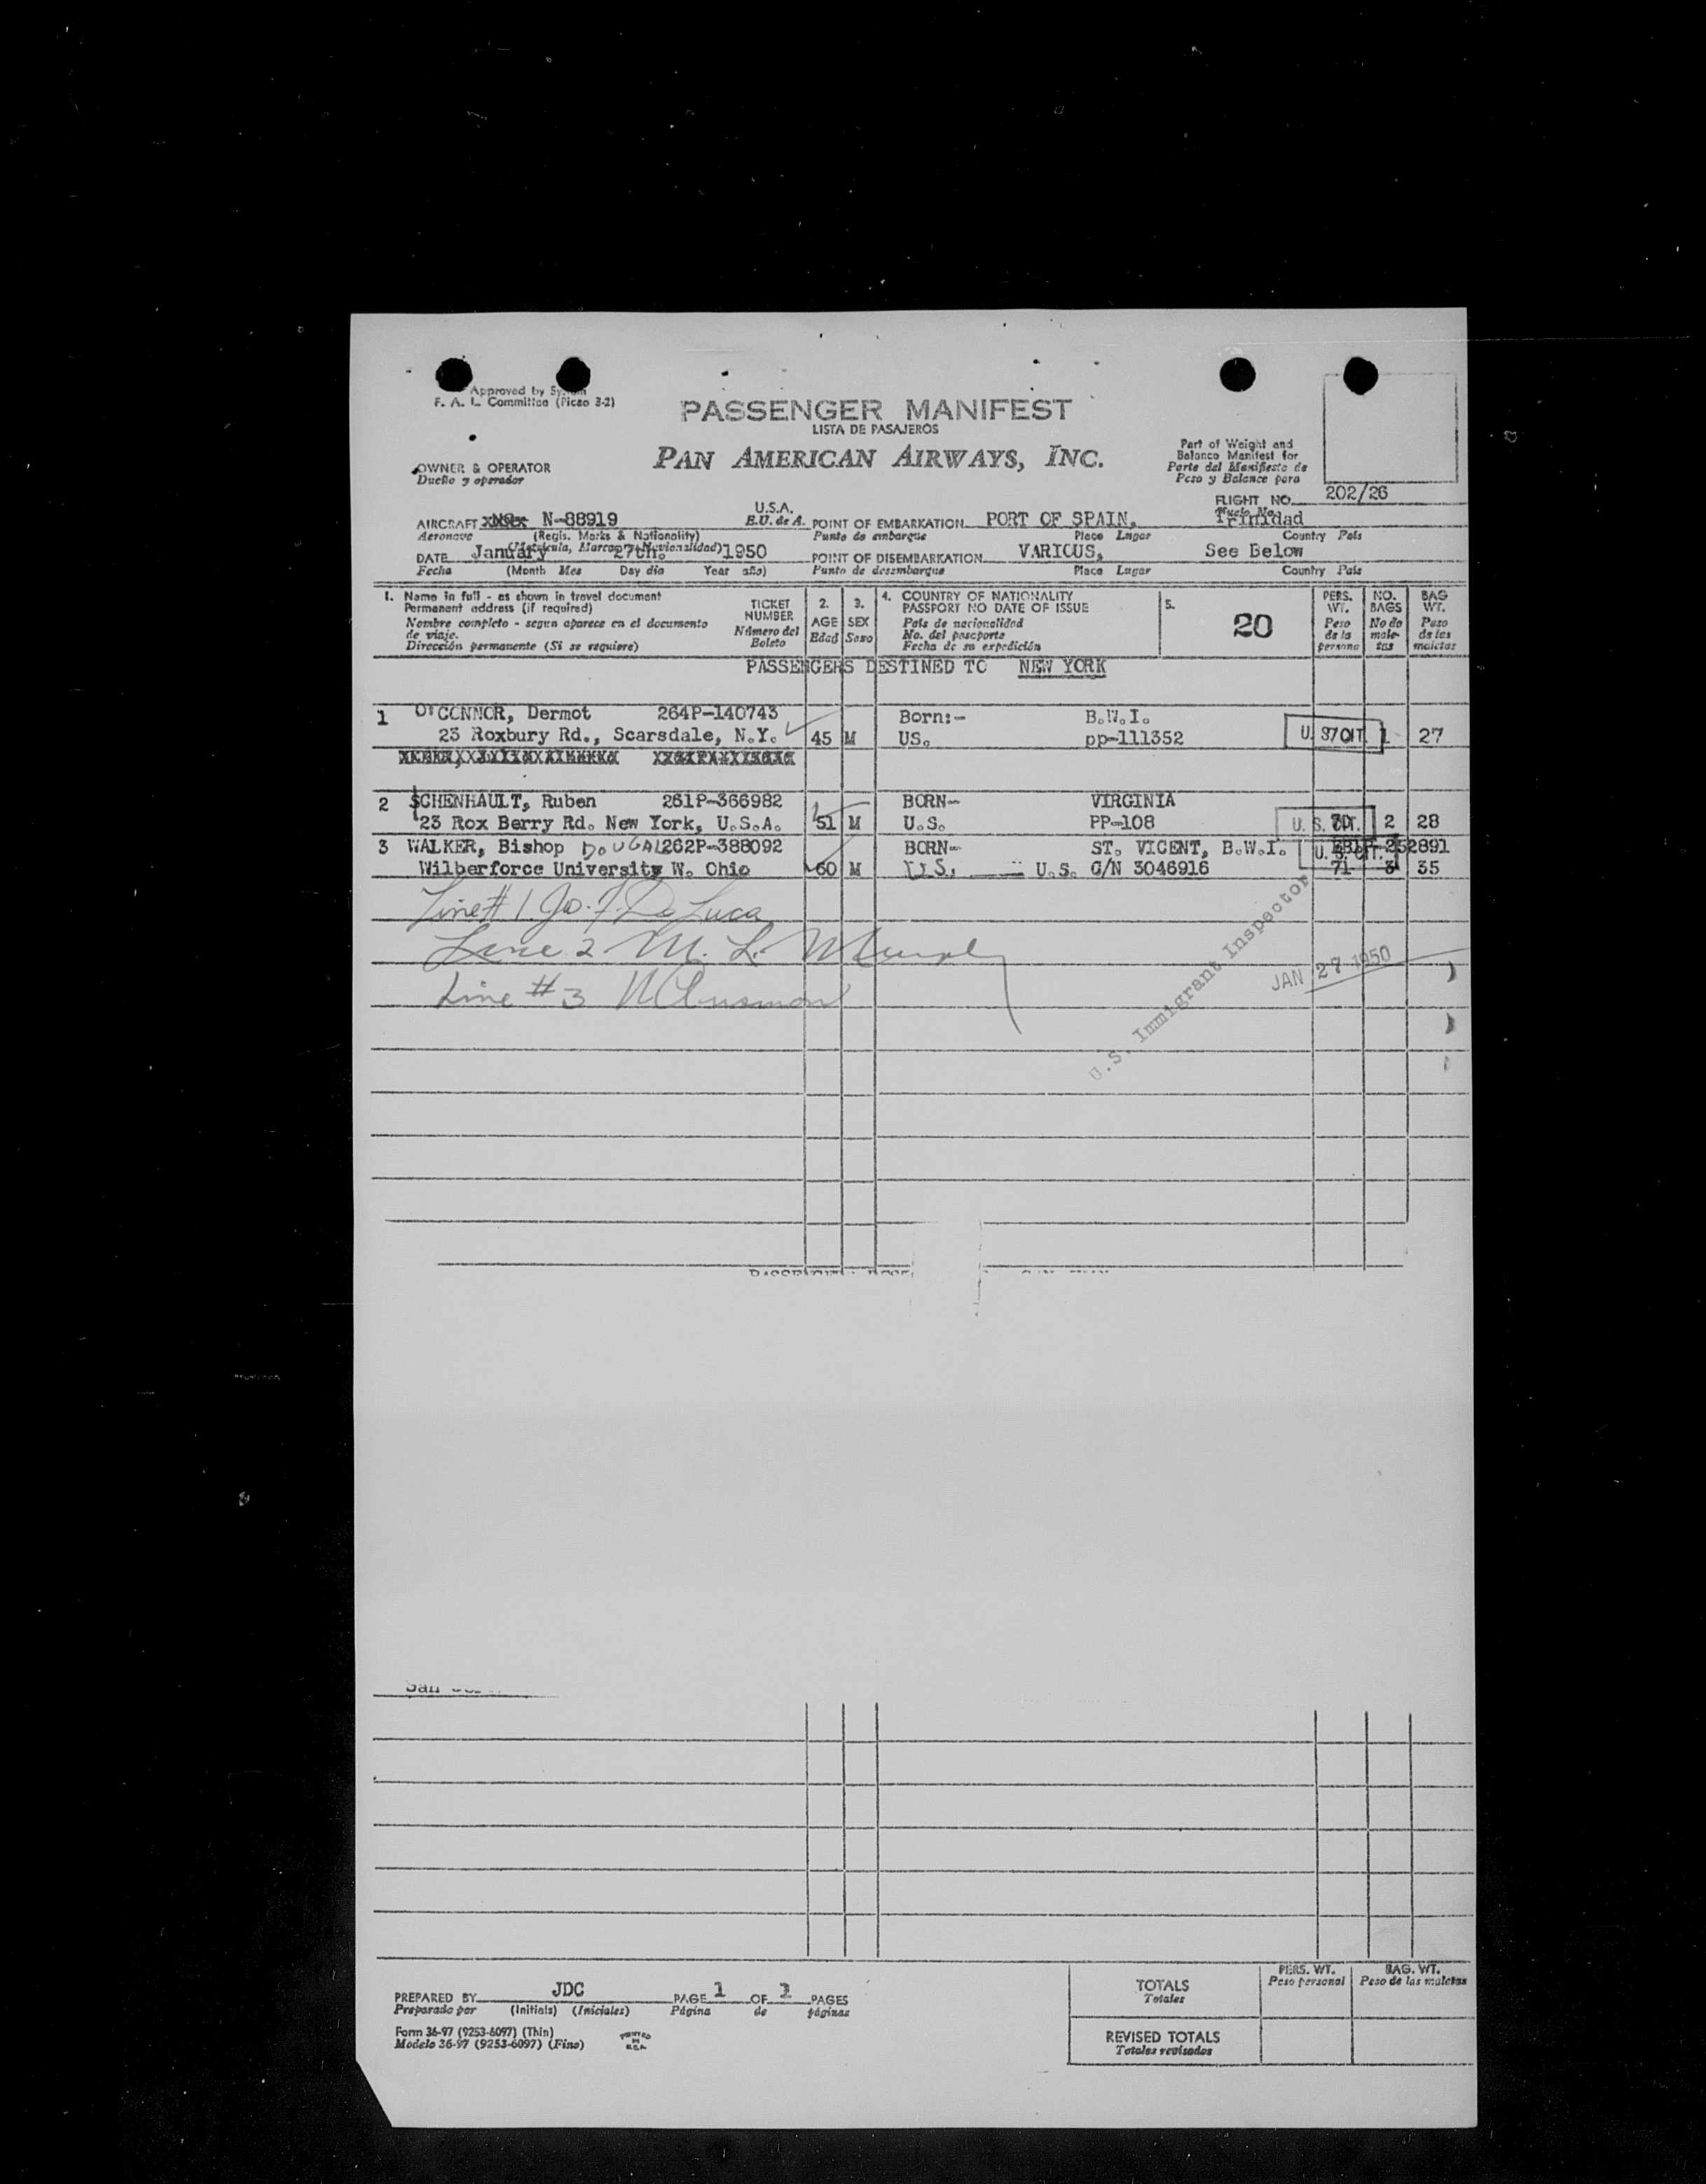 Approved by System
F. A. L. Committee (Picao 3-2)
PASSENGER MANIFEST
LISTA DE PASAJEROS
PAN AMERICAN AIRWAYS, INC.
Part of Weight and
Balance Manifest for
Parte del Manifiesto de
Peso y Balance para
OWNER & OPERATOR
Dueño y operador
FLIGHT NO. 202/26
Vuelo No.
AIRCRAFT N-88919 U.S.A. POINT OF EMBARKATION PORT OF SPAIN, Trinidad
Aeronave (Regis. Marks & Nationality) E.U. de A. Punto de embarque Place Lugar Country País
(Matrícula, Marcas y Nacionalidad)
DATE January 27th. 1950 POINT OF DISEMBARKATION VARIOUS, See Below
Fecha (Month Mes Day día Year año) Punto de desembarque Place Lugar Country País
1. Name in full - as shown in travel document
Permanent address (if required)
Nombre completo - segun aparece en el documento
de viaje.
Dirección permanente (Si se requiere)
TICKET
NUMBER
Número del
Boleto
2.
AGE
Edad
3.
SEX
Sexo
4. COUNTRY OF NATIONALITY
PASSPORT NO DATE OF ISSUE
País de nacionalidad
No. del pasaporte
Fecha de su expedición
5.
20
PERS.
WT.
Peso
de la
persona
NO.
BAGS
No de
male-
tas
BAG
WT.
Peso
de las
maletas
PASSENGERS DESTINED TO NEW YORK
1 O'CONNOR, Dermot 264P-140743 Born:- B.W.I.
23 Roxbury Rd., Scarsdale, N.Y. 45 M US. pp-111352 U. S. CIT. 1 27
2 SCHENHAULT, Ruben 261P-366982 BORN- VIRGINIA
23 Rox Berry Rd. New York, U.S.A. 51 M U.S. PP-108 U. S. CIT. 2 28
3 WALKER, Bishop DOUGAL 262P-388092 BORN- ST. VICENT, B.W.I. 252891
Wilberforce University W. Ohio 60 M U.S. U.S. C/N 3046916 U. S. CIT. 71 3 35
Line # 1. Jos. F. De Luca
Line 2 M. L. Murphy
Line # 3
U.S. Immigrant Inspector
JAN 27 1950
San
PREPARED BY JDC PAGE 1 OF 2 PAGES
Preparado por (Initials) (Iniciales) Página de páginas
Form 36-97 (9253-6097) (Thin)
Modelo 36-97 (9253-6097) (Fino)
PRINTED
IN
U.S.A.
PERS. WT.
Peso personal
BAG. WT.
Peso de las maletas
TOTALS
Totales
REVISED TOTALS
Totales revisados